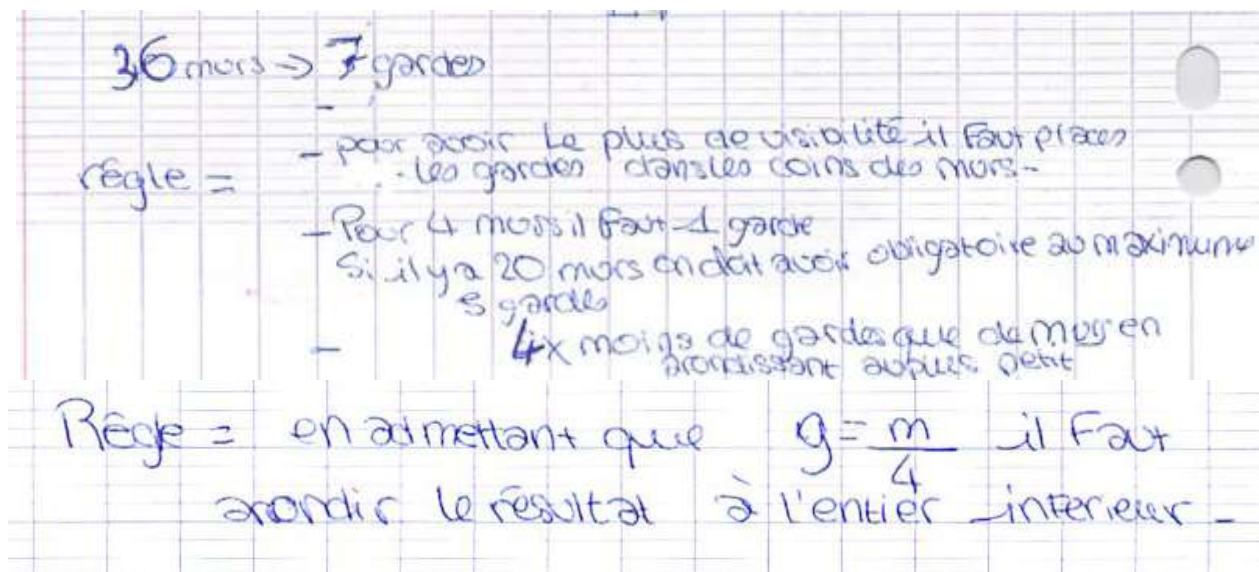 36 murs → 7 gardes
-
- pour avoir le plus de visibilité il Faut placer
règle =
les gardes dans les coins des murs-
- Pour 4 murs il faut 1 garde
Si il y a 20 murs on doit avoir obligatoire au maximum
5 gardes
- 4x moins de gardes que de murs en
arondissant au plus petit
Règle = en admettant que g = m/4 il Faut
arondir le résultat à l'entier inferieur -